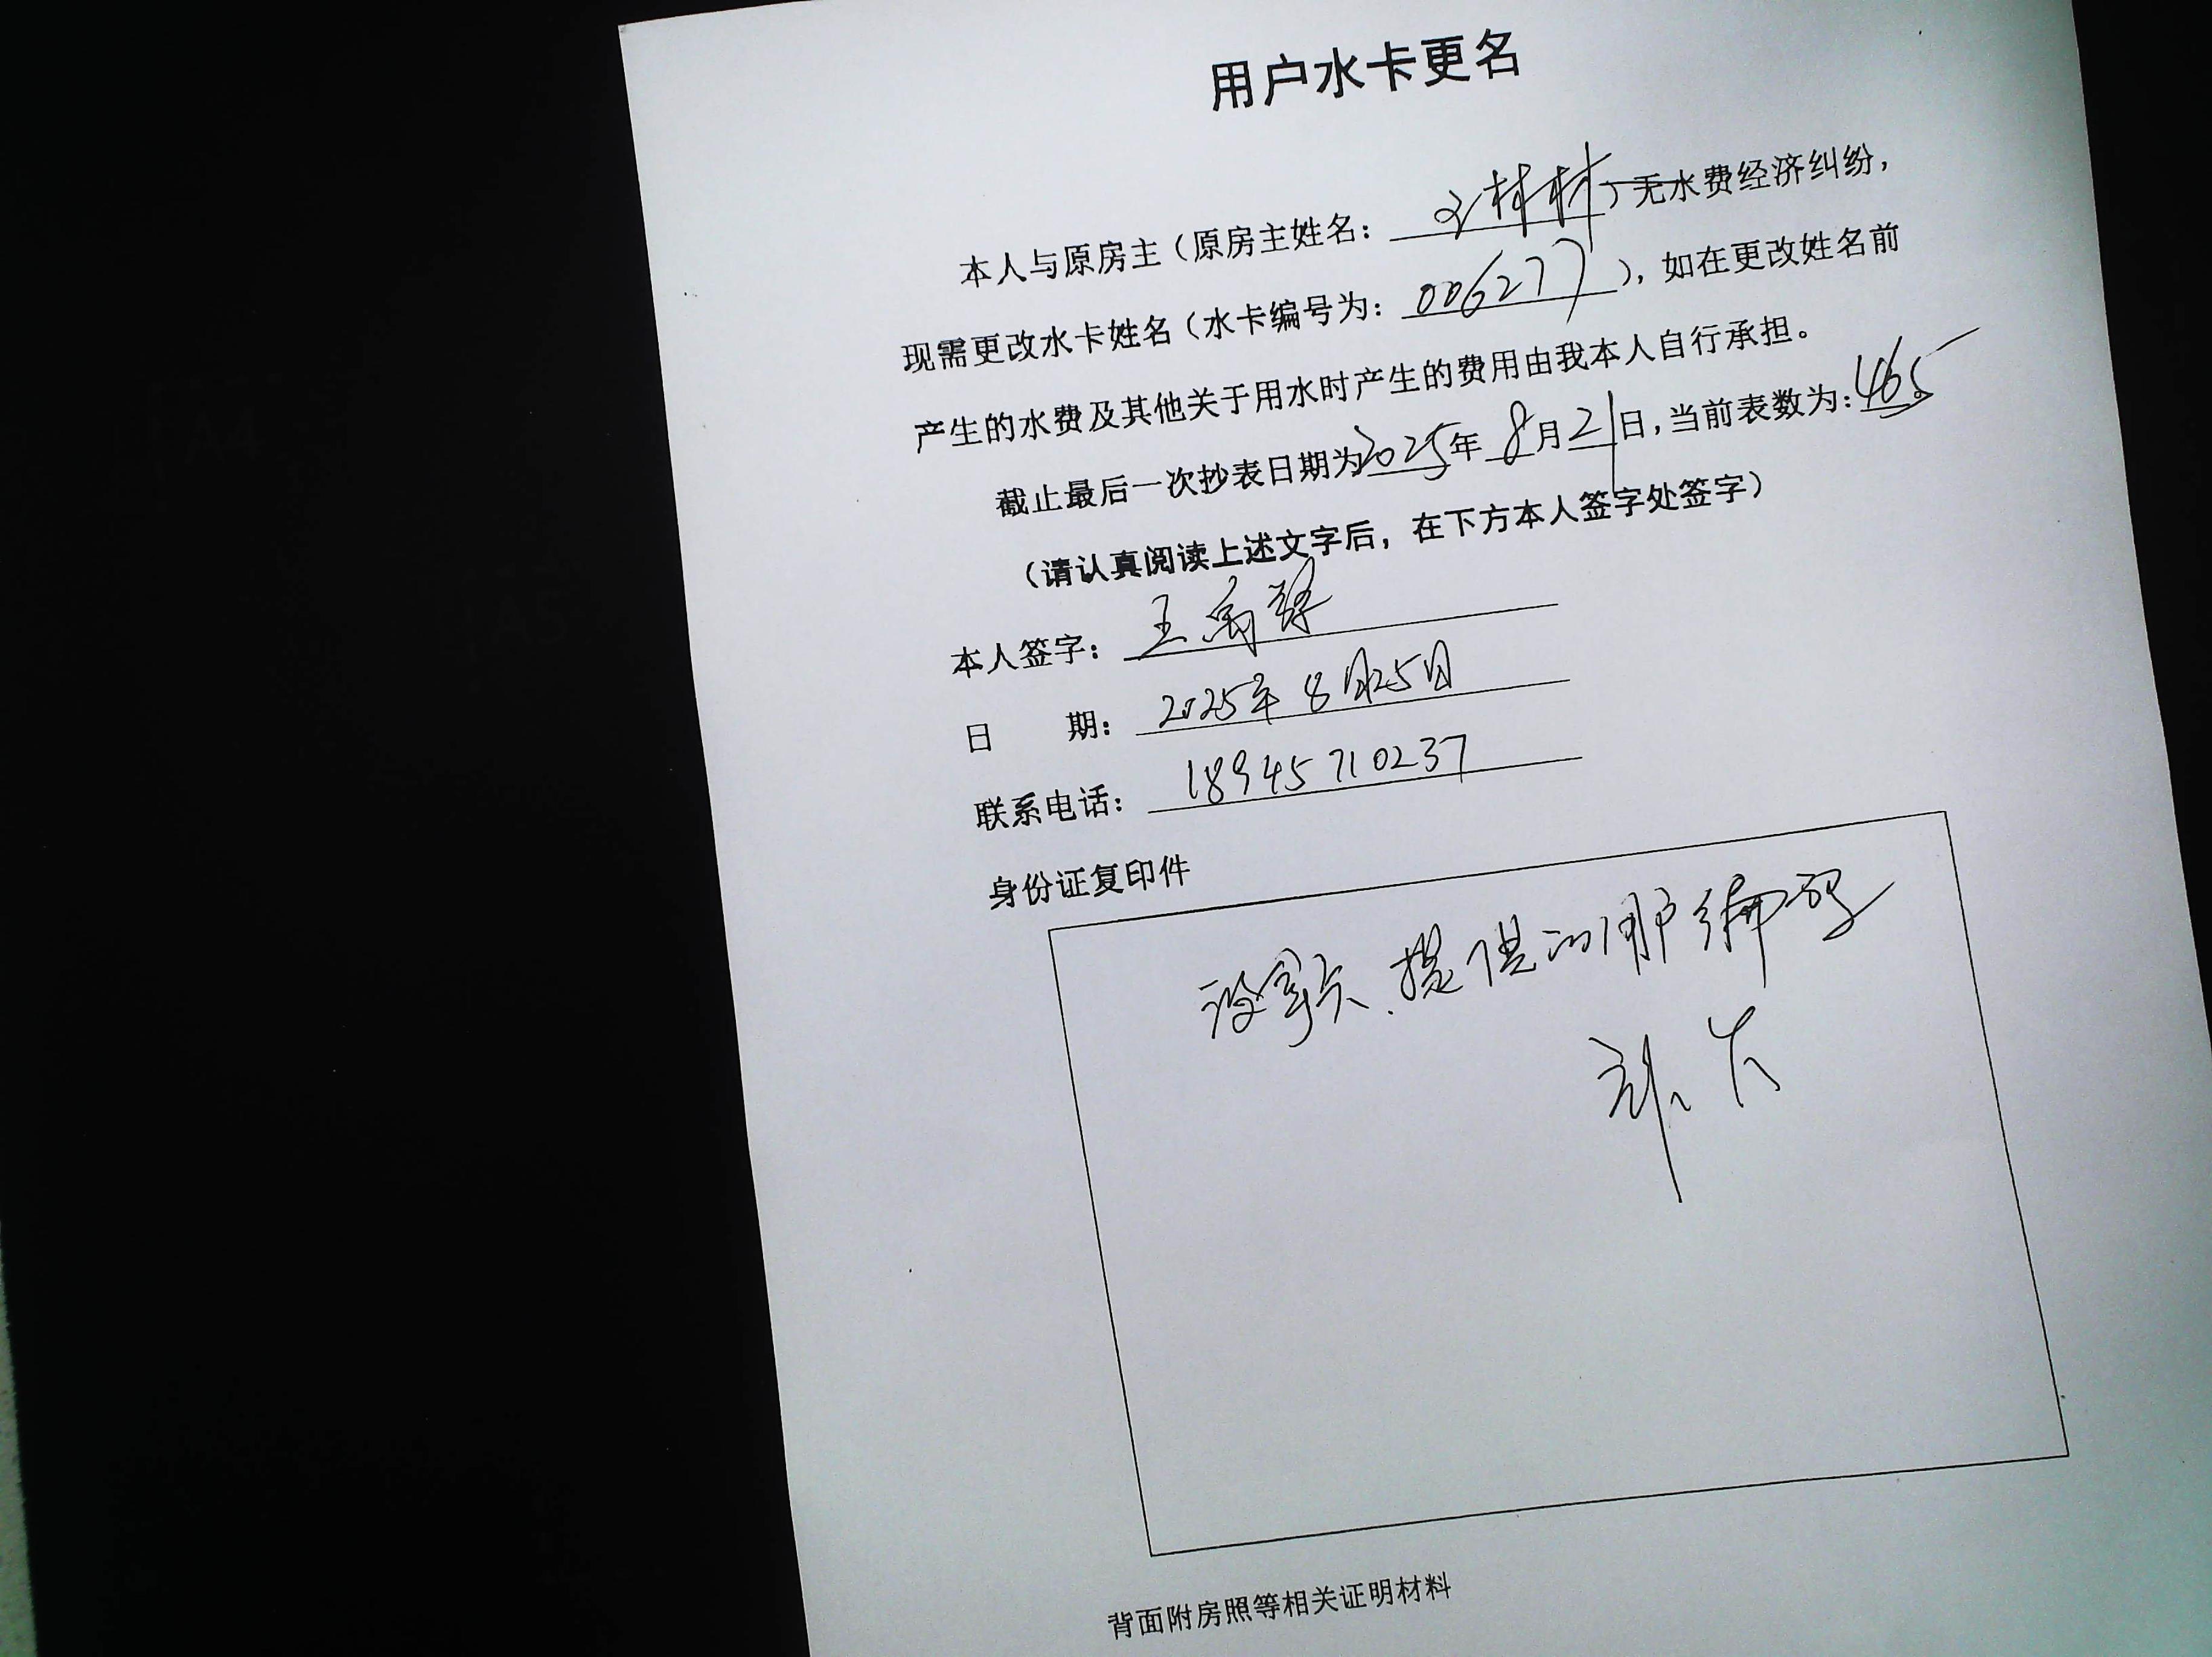 用户水卡更名
本人与原房主（原房主姓名：林林）无水费经济纠纷，
现需更改水卡姓名（水卡编号为：006277），如在更改姓名前
产生的水费及其他关于用水时产生的费用由我本人自行承担。
截止最后一次抄表日期为2025年8月21日，当前表数为：465
（请认真阅读上述文字后，在下方本人签字处签字）
本人签字：王
日期：2025年8月25日
联系电话：18945710237
身份证复印件
没拿卡.提供的用户编码
背面附房照等相关证明材料